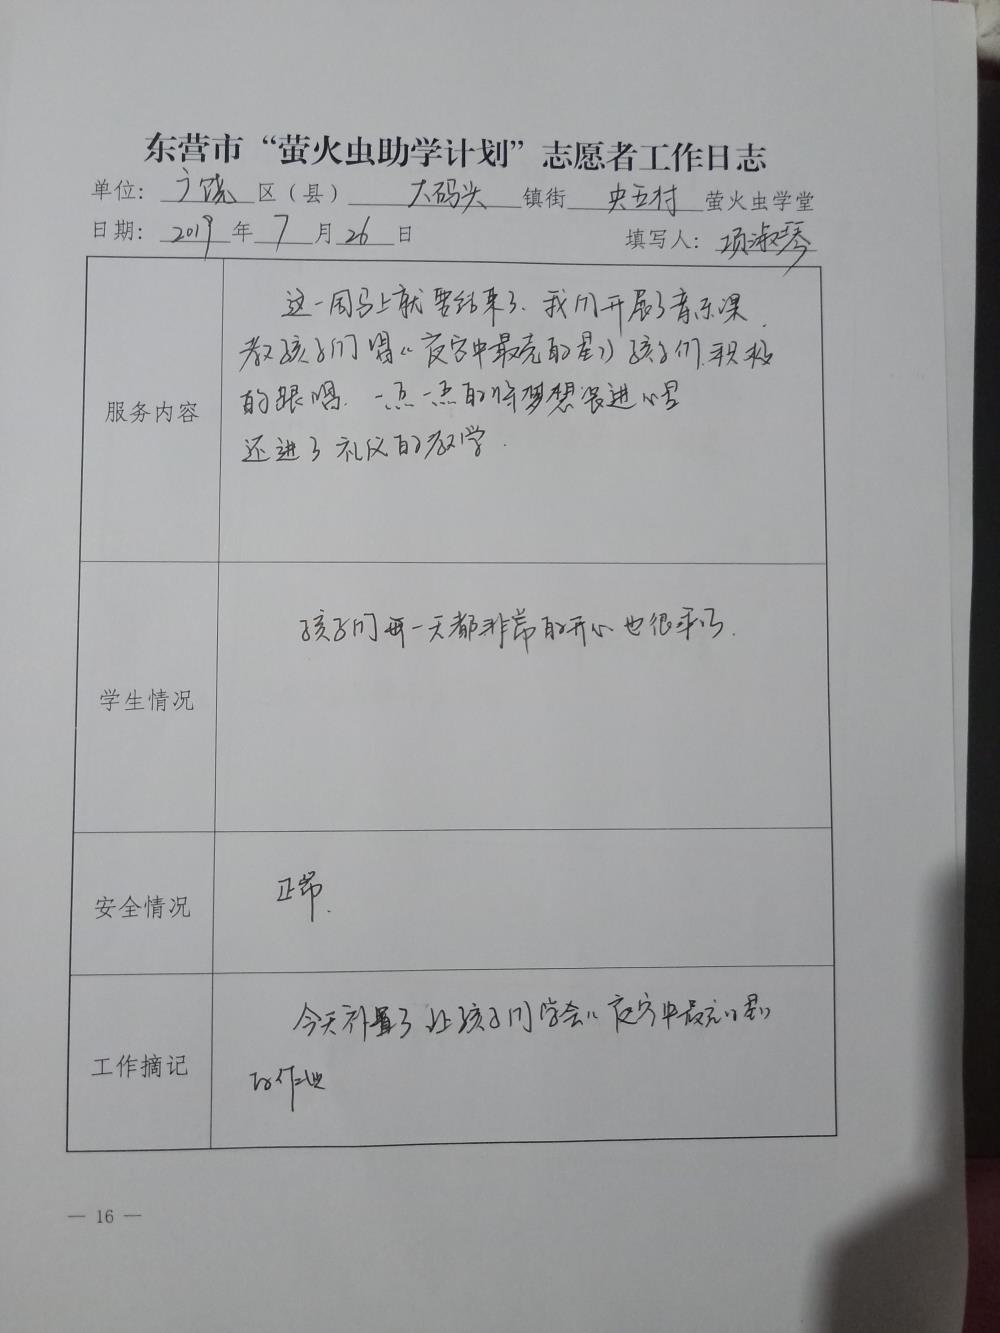 东营市“萤火虫助学计划”志愿者工作日志
单位：广饶区（县）大码头镇街央五村萤火虫学堂
日期：2019年7月26日 填写人：项淑琴
服务内容
这一周马上就要结束了、我们开展了音乐课，
教孩子们唱《夜空中最亮的星》孩子们积极
的跟唱．一点一点的将梦想装进心里
还进了礼仪的教学．
学生情况
孩子们每一天都非常的开心也很乖巧．
安全情况
正常．
工作摘记
今天布置了让孩子们学会《夜空中最亮的星》
的作业
— 16 —